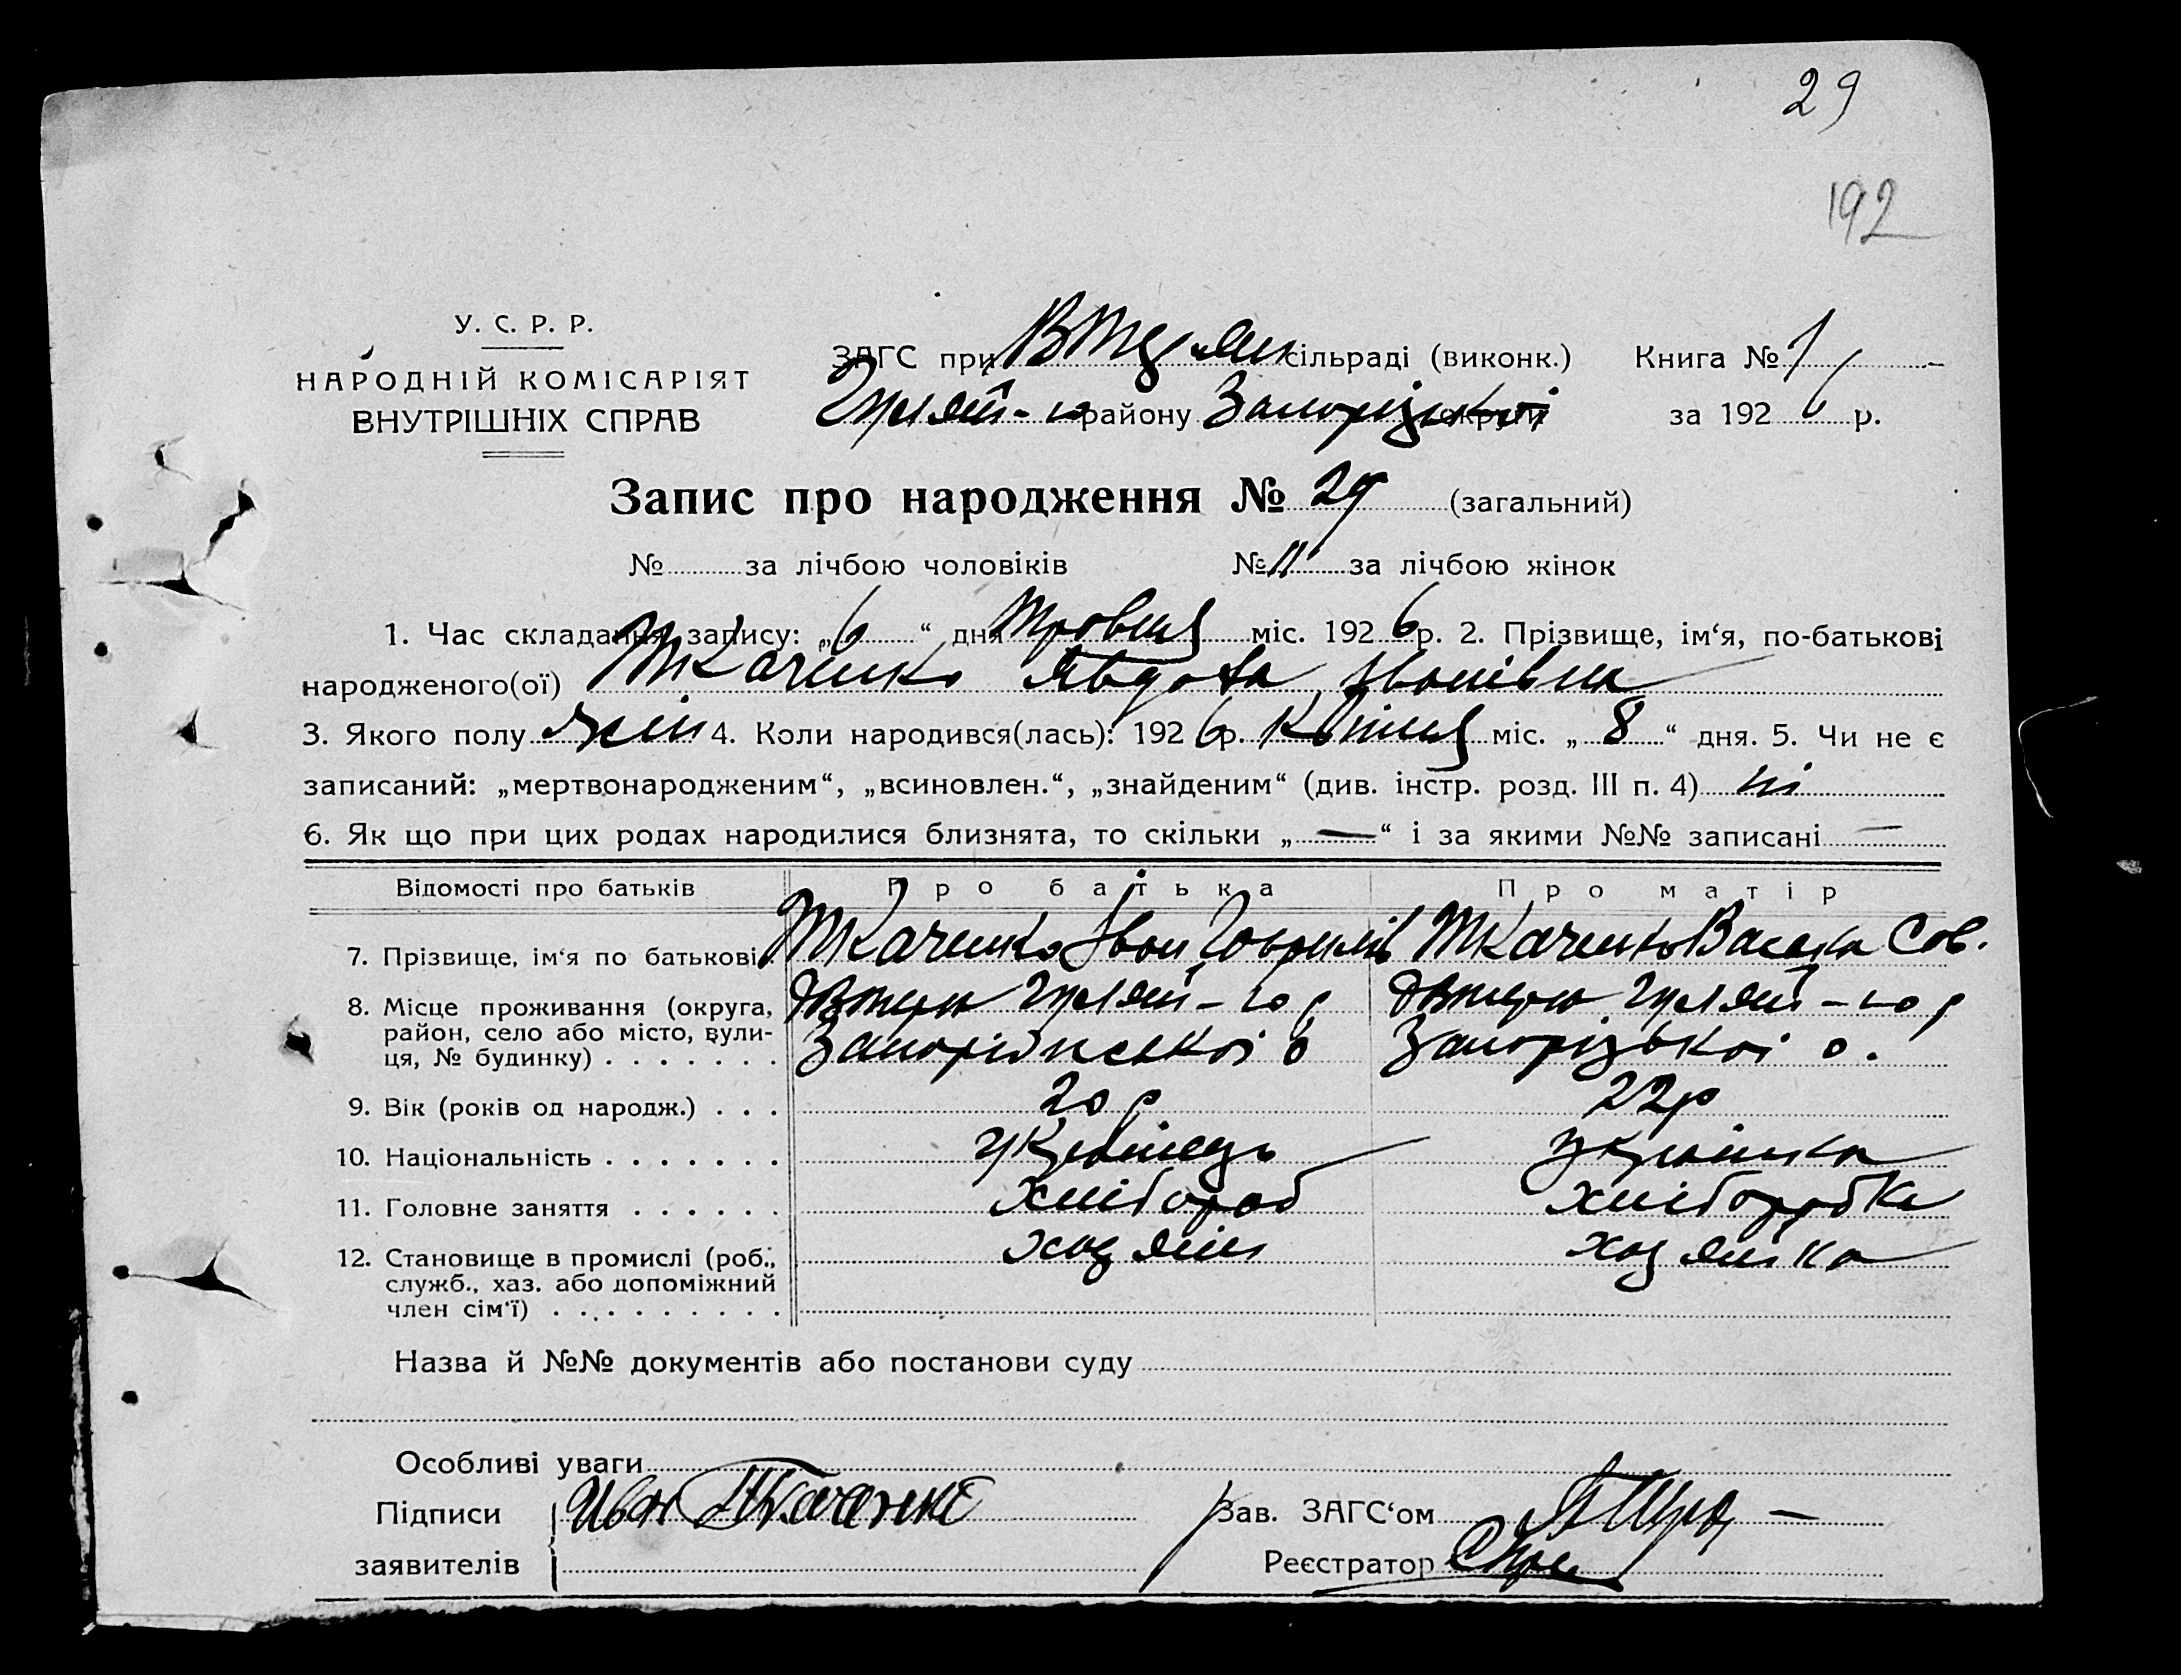 29
192
У. С. Р. Р.
НАРОДНІЙ КОМІСАРІЯТ
ВНУТРІШНІХ СПРАВ
ЗАГС при сільраді (виконк.) Книга № 1
Гуляй- го району Запорізької округи за 1926 р.
Запис про народження № 29 (загальний)
№ за лічбою чоловіків № 11 за лічбою жінок
1. Час складання запису: „6“ дня Травня міс. 1926 р. 2. Прізвище, ім‘я, по-батькові
народженого(ої) Ткаченко Явдоха Іванівна
3. Якого полу жін 4. Коли народився(лась): 1926 р. Квітня міс. „8“ дня. 5. Чи не є
записаний: „мертвонародженим“, „всиновлен.“, „знайденим“ (див. інстр. розд. III п. 4) ні
6. Як що при цих родах народилися близнята, то скільки „—“ і за якими №№ записані —
Відомості про батьків Про батька Про матір
7. Прізвище, ім‘я по батькові Ткаченко Іван Гаврилів Ткаченко Васька Сав.
8. Місце проживання (округа, Гуляй-го р Гуляй-го р
район, село або місто, вули-
ця, № будинку) . . . . . . . Запоріжської о Запорізької о.
9. Вік (років од народж.) . . . 20 р 22 р
10. Національність . . . . . . . українець українка
11. Головне заняття . . . . . . хлібороб хліборобка
12. Становище в промислі (роб., хозяїн хозяйка
служб., хаз. або допоміжний
член сім‘ї) . . . . . . . . . .
Назва й №№ документів або постанови суду
Особливі уваги
Підписи Иван Ткаченко Зав. ЗАГС‘ом
заявителів Реєстратор